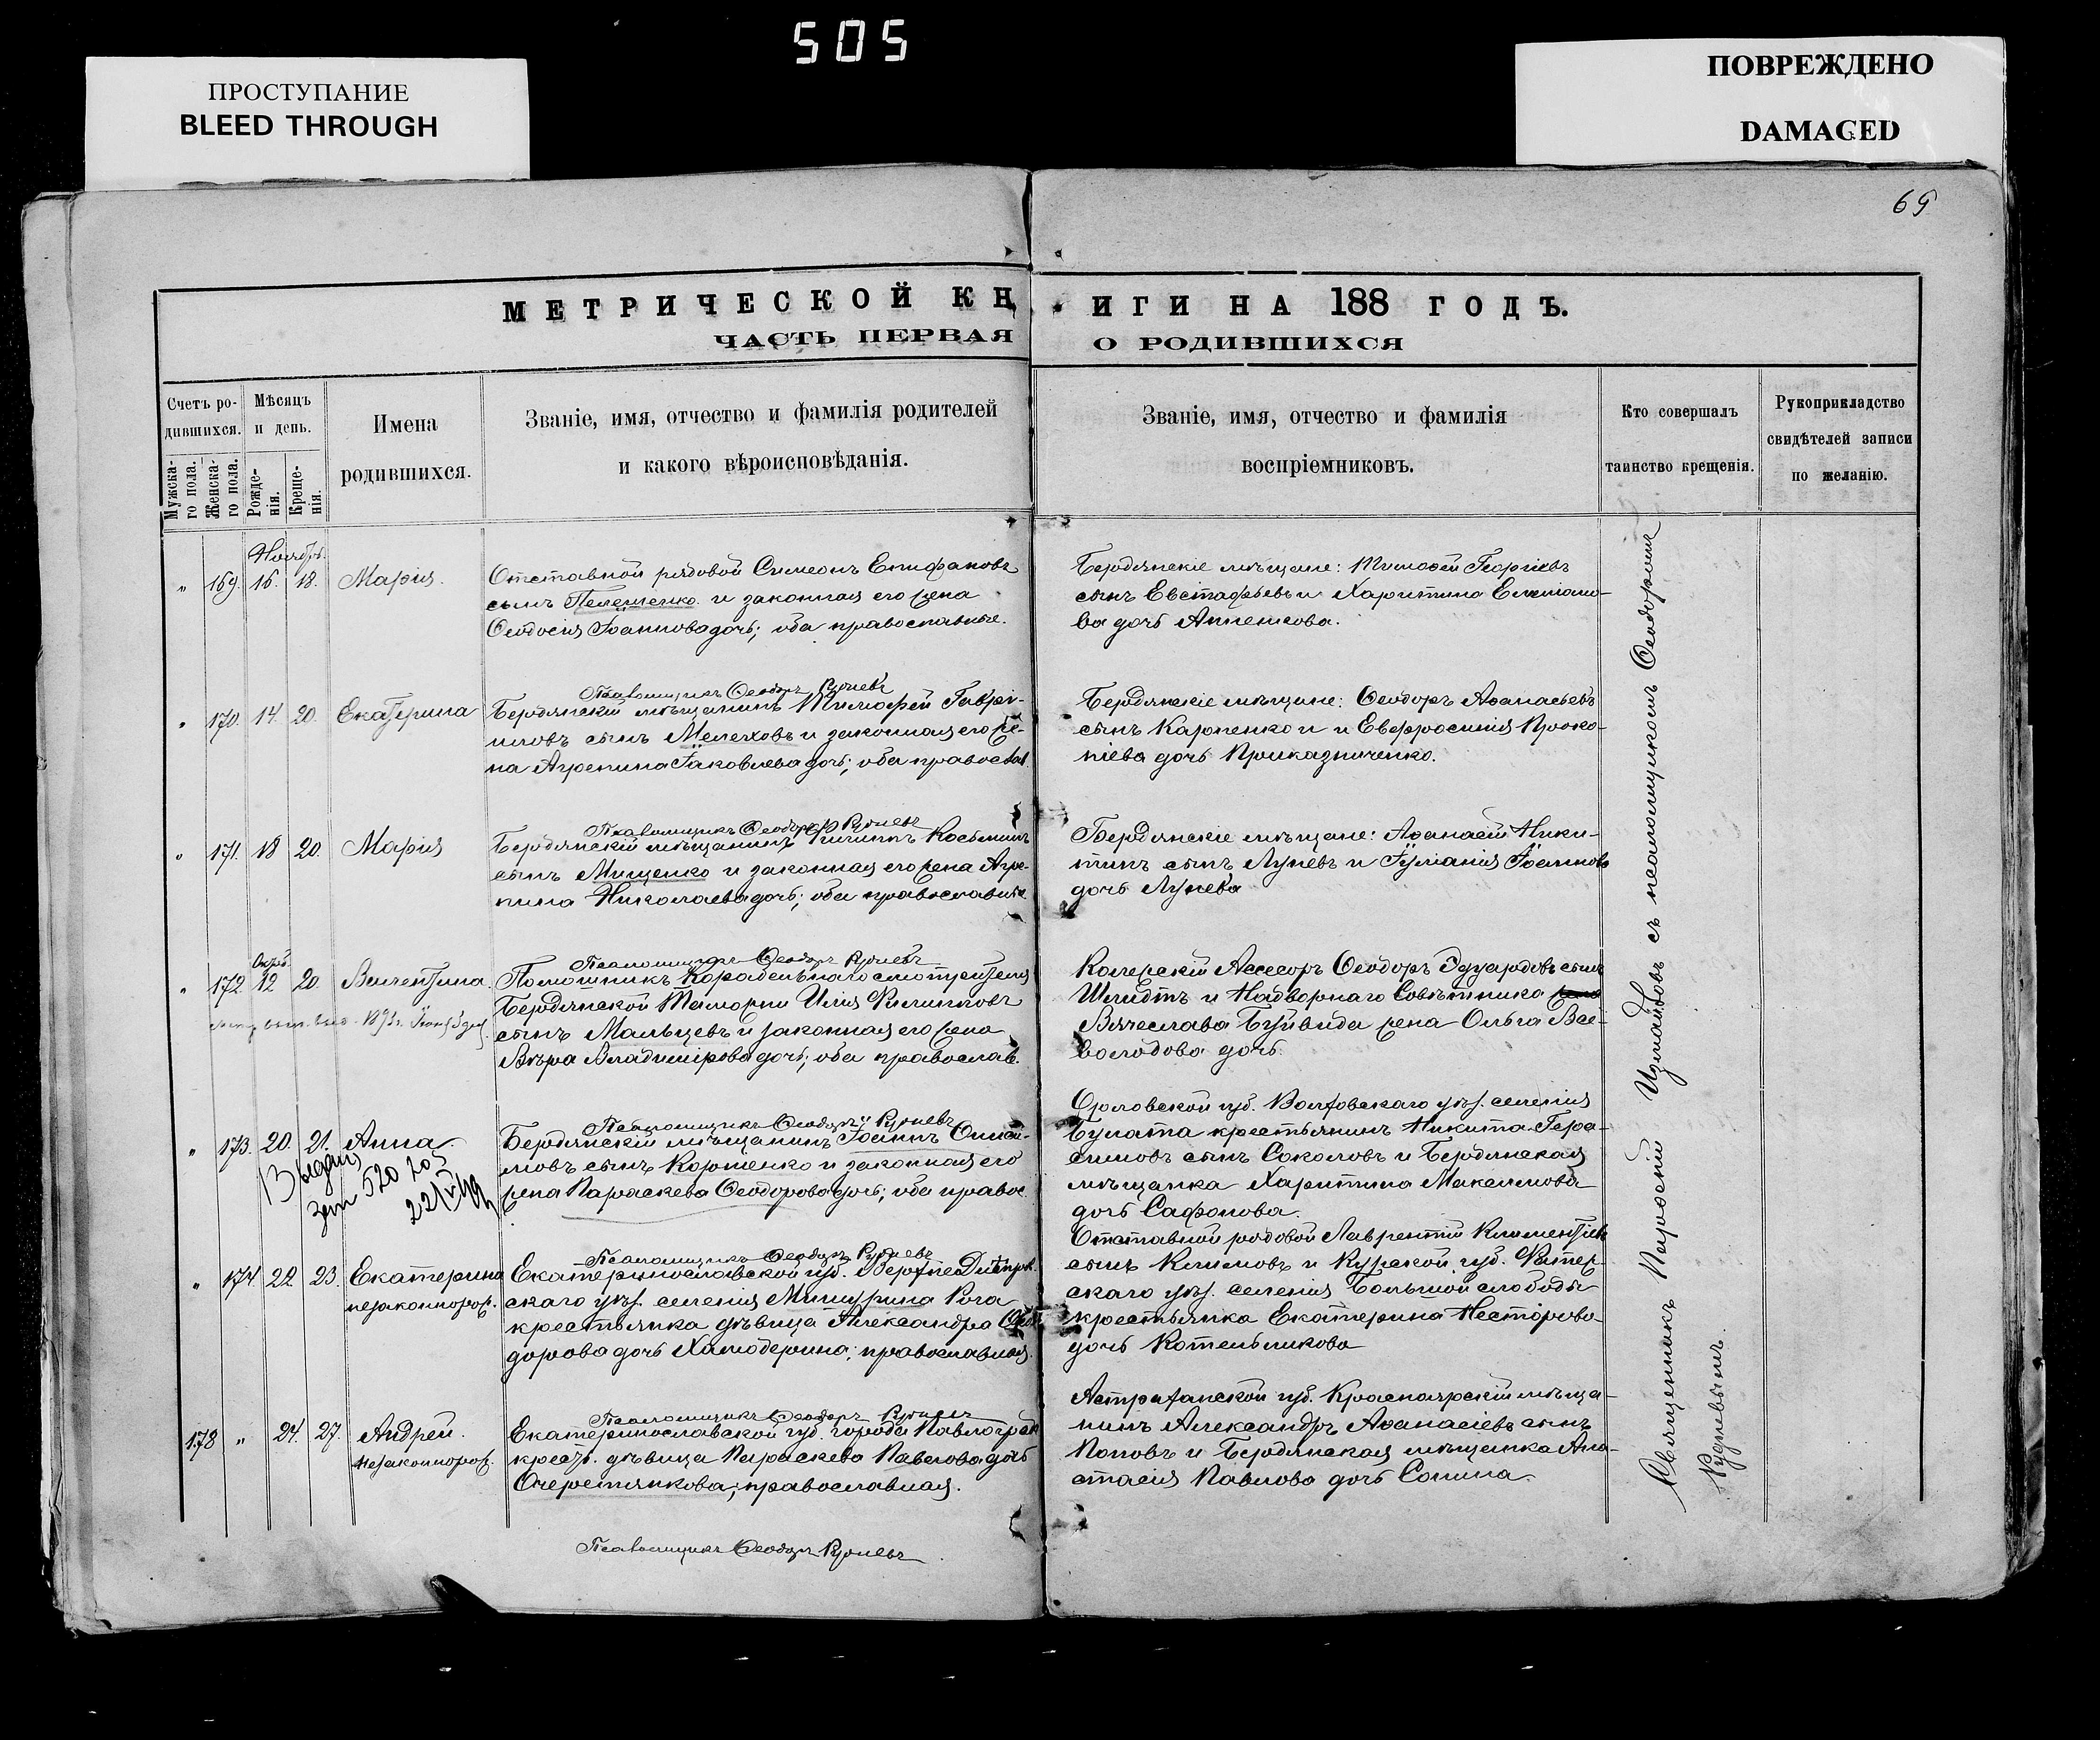 505
ПРОСТУПАНИЕ
BLEED THROUGH
ПОВРЕЖДЕНО
DAMAGED
69
МЕТРИЧЕСКОЙ КНИГИ НА 188 ГОДЪ.
ЧАСТЬ ПЕРВАЯ О РОДИВШИХСЯ
Счетъ ро-
дившихся.
Мужска-
го пола.
Женска-
го пола.
Мѣсяцъ
и день.
Рожде-
нія.
Креще-
нія.
Имена
родившихся.
Званіе, имя, отчество и фамилія родителей
и какого вѣроисповѣданія.
Званіе, имя, отчество и фамилія
воспріемниковъ.
Кто совершалъ
таинство крещенія.
Рукоприкладство
свидѣтелей записи
по желанію.
Ноябрь.
" 169. 16. 18. Марія.
Отставной рядовой Симеонъ Епифановъ
сынъ Пелешенко и законная его жена
Ѳеодосія Іоаннова дочь; оба православные.
Бердянскіе мѣщане: Тимоѳей Георгіевъ
сынъ Евстафьевъ и Харитина
ва дочь
Псаломщикъ Ѳеодоръ Рудневъ
" 170. 14. 20. Екатерина
Бердянскій мѣщанинъ Тимофей Гаврі-
иловъ сынъ Мелеховъ и законная его же-
на Агрепина Іаковлева дочь; оба православ.
Бердянскіе мѣщане: Ѳеодоръ Аѳанасьевъ
сынъ Карпенко и и Евфросинія Проко-
піева дочь Приказниченко.
Псаломщикъ Ѳеодоръ Рудневъ
" 171. 18 20. Марія
Бердянскій мѣщанинъ Косьминъ
сынъ Мищенко и законная его жена Агре-
пина Николаева дочь; оба православные
Бердянскіе мѣщане: Аѳанасій Ники-
тинъ сынъ Луневъ и Іуліанія Іоаннова
дочь Лунева
Псаломщикъ Ѳеодоръ Рудневъ
Окт.
" 172. 12 20. Валентина.
Помощникъ Корабельнаго смотрителя
Бердянской Таможни Илія Филипповъ
сынъ Мальцевъ и законная его жена
Вѣра Владимірова дочь; оба православ.
Колежскій Асесоръ Ѳеодоръ Эдуардовъ сынъ
Шмидтъ и Надворнаго Совѣтника
Вячеслава Буйвида жена Ольга Все-
володова дочь.
Псаломщикъ Ѳеодоръ Рудневъ
" 173. 20. 21. Анна.
Бердянскій мѣщанинъ Іоаннъ
мовъ сынъ Коршенко и законная его
жена Параскева Ѳеодорова дочь; оба правос.
Орловской губ. Волховскаго уѣз. селенія
Булата крестьянинъ Никита Гера-
симовъ сынъ Соколовъ и Бердянская
мѣщанка Харитина Максимова
дочь Сафонова.
Псаломщикъ Ѳеодоръ Рудневъ
" 174. 22. 23. Екатерина
незаконнорож.
Екатеринославской губ. Верхнеднѣпров-
скаго уѣз. селенія Мишурина Рога
крестьянка дѣвица Александра Ѳео-
дорова дочь Хамодерина; православная.
Отставной рядовой Лаврентій Климентіевъ
сынъ Климовъ и Курской губ. Фатеж-
скаго уѣз. селенія Большой слободы
крестьянка Екатерина Несторова
дочь Котельникова
Псаломщикъ Ѳеодоръ Рудневъ
178 " 24. 27. Андрей.
незаконнорож.
Екатеринославской губ. города Павлограда
крест. дѣвица Параскева Павлова дочь
Очеретянкова; православная.
Астраханской губ. Красноярскій мѣща-
нинъ Александръ Аѳанасіевъ сынъ
Поповъ и Бердянская мѣщанка Ана-
стасія Павлова дочь Сонина
Псаломщикъ Ѳеодоръ Рудневъ
Священникъ Пароскій Измайловъ съ псаломщикомъ Ѳеодоромъ
Рудневымъ.